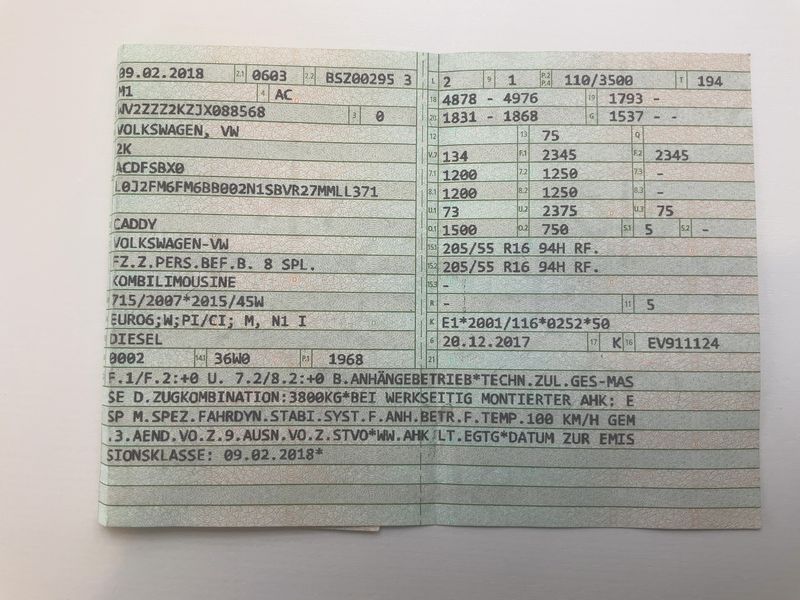 09.02.2018 2.1 0603 2.2 BSZ00295 3
M1 4 AC
WV2ZZZ2KZJX088568 3 0
VOLKSWAGEN, VW
2K
ACDFSBX0
L0J2FM6FM6BB002N1SBVR27MMLL371
CADDY
VOLKSWAGEN-VW
FZ.Z.PERS.BEF.B. 8 SPL.
KOMBILIMOUSINE
715/2007*2015/45W
EURO6;W;PI/CI; M, N1 I
DIESEL
0002 14.1 36W0 P.1 1968
L 2 9 1 P.2 P.4 110/3500 T 194
18 4878 - 4976 19 1793 -
20 1831 - 1868 G 1537 - -
12 13 75 Q
V.7 134 F.1 2345 F.2 2345
7.1 1200 7.2 1250 7.3 -
8.1 1200 8.2 1250 8.3 -
U.1 73 U.2 2375 U.3 75
O.1 1500 O.2 750 S.1 5 S.2 -
15.1 205/55 R16 94H RF.
15.2 205/55 R16 94H RF.
15.3 -
R - 11 5
K E1*2001/116*0252*50
6 20.12.2017 17 K 16 EV911124
21
F.1/F.2:+0 U. 7.2/8.2:+0 B.ANHÄNGEBETRIEB*TECHN.ZUL.GES-MAS
SE D.ZUGKOMBINATION:3800KG*BEI WERKSEITIG MONTIERTER AHK: E
SP M.SPEZ.FAHRDYN.STABI.SYST.F.ANH.BETR.F.TEMP.100 KM/H GEM
.3.AEND.VO.Z.9.AUSN.VO.Z.STVO*WW.AHK LT.EGTG*DATUM ZUR EMIS
SIONSKLASSE: 09.02.2018*